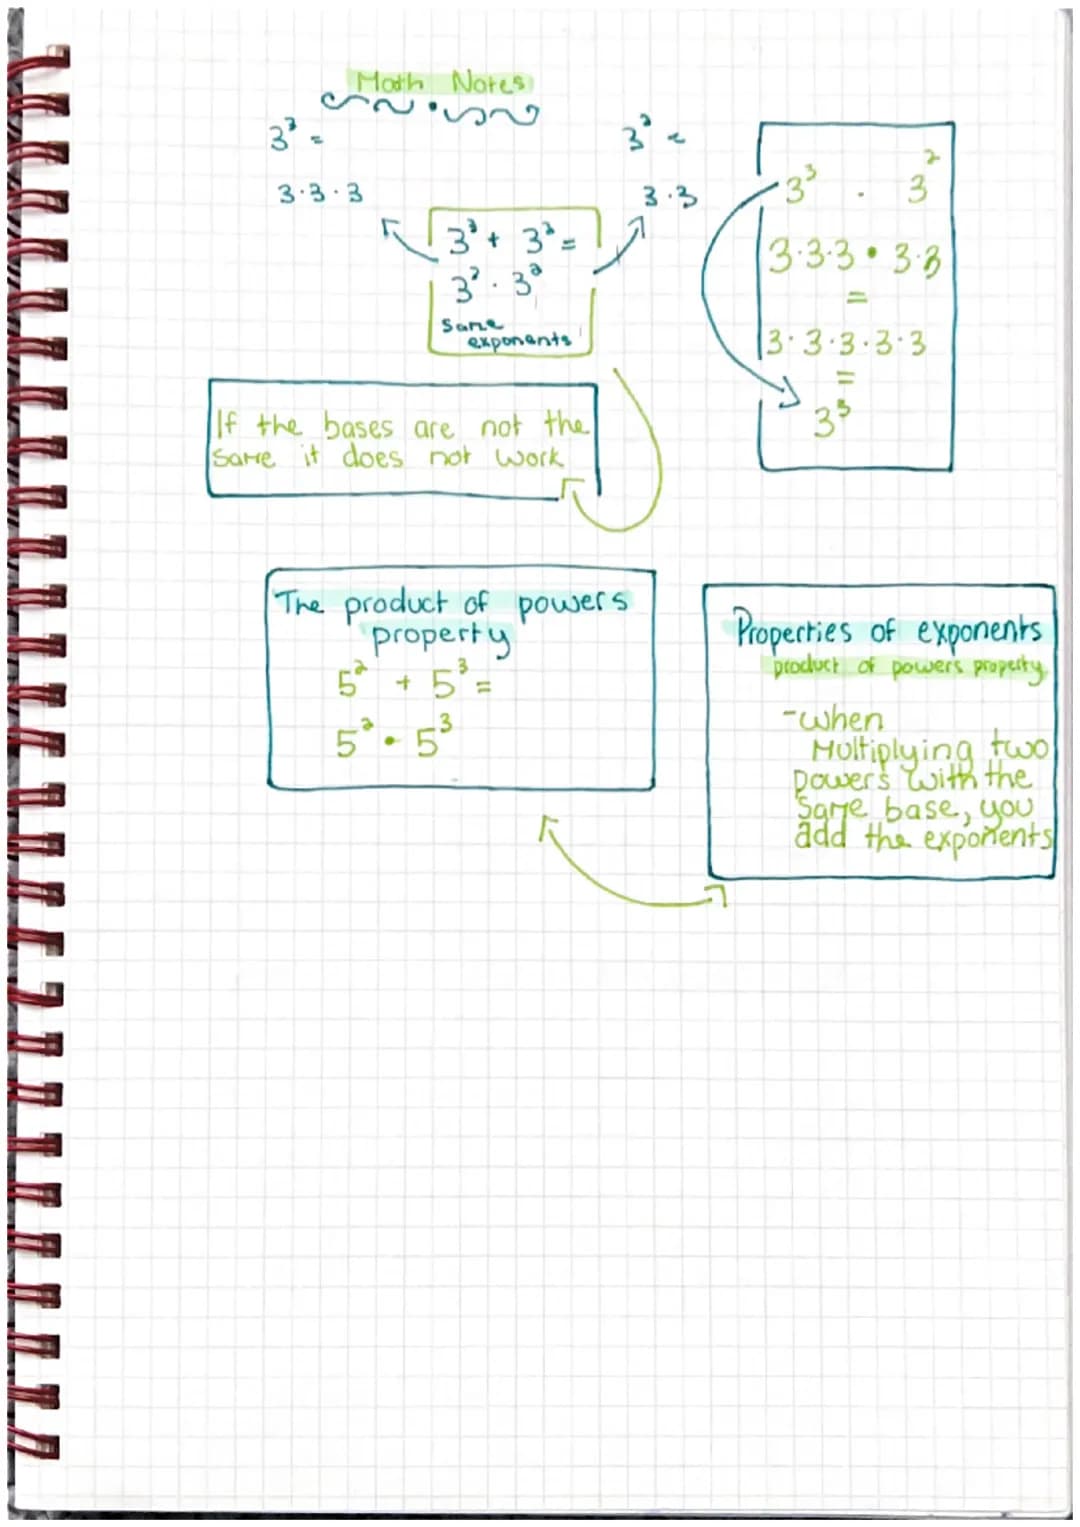 Math Notes
3³ =
3·3·3
3² =
3·3
3³ + 3² =
3³ · 3²
Same
exponents
3³ · 3²
3·3·3 • 3·3
=
3·3·3·3·3
=
3⁵
If the bases are not the
same it does not work
The product of powers
property
5² + 5³ =
5² • 5³
Properties of exponents
product of powers property
-when
Multiplying two
powers with the
same base, you
add the exponents